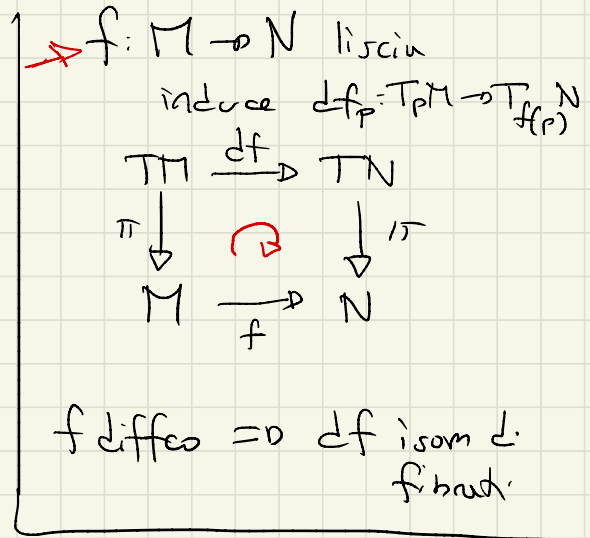 f: M → N liscia
induce df_p: T_pM → T_{f(p)} N
TM df→ TN
π π
M f→ N
f diffeo ⇒ df isom di
fibrati